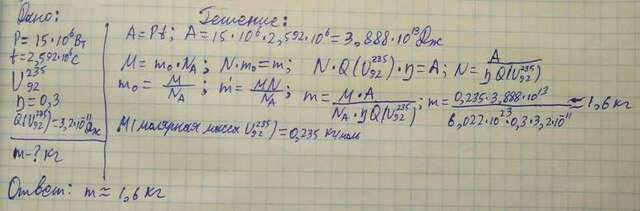 Дано:
P = 15·10⁶ Вт
t = 2,592·10⁶ с
U₉₂²³⁵
η = 0,3
Q(U₉₂²³⁵) = 3,2·10⁻¹¹ Дж
m - ? кг
Решение:
A = Pt; A = 15·10⁶·2,592·10⁶ = 3,888·10¹³ Дж
M = m₀·N_A; N·m₀ = m; N·Q(U₉₂²³⁵)·η = A; N = A / ηQ(U₉₂²³⁵)
m₀ = M / N_A; m = MN / N_A; m = M·A / N_A·ηQ(U₉₂²³⁵); m = 0,235·3,888·10¹³ / 6,022·10²³·0,3·3,2·10⁻¹¹ ≈ 1,6 кг
M(молярная масса U₉₂²³⁵) = 0,235 кг/моль
Ответ: m ≈ 1,6 кг